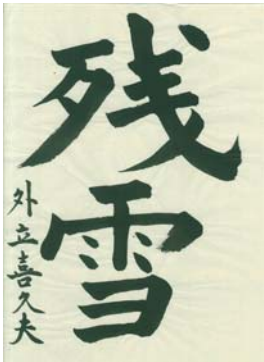 残雪
外立喜久夫